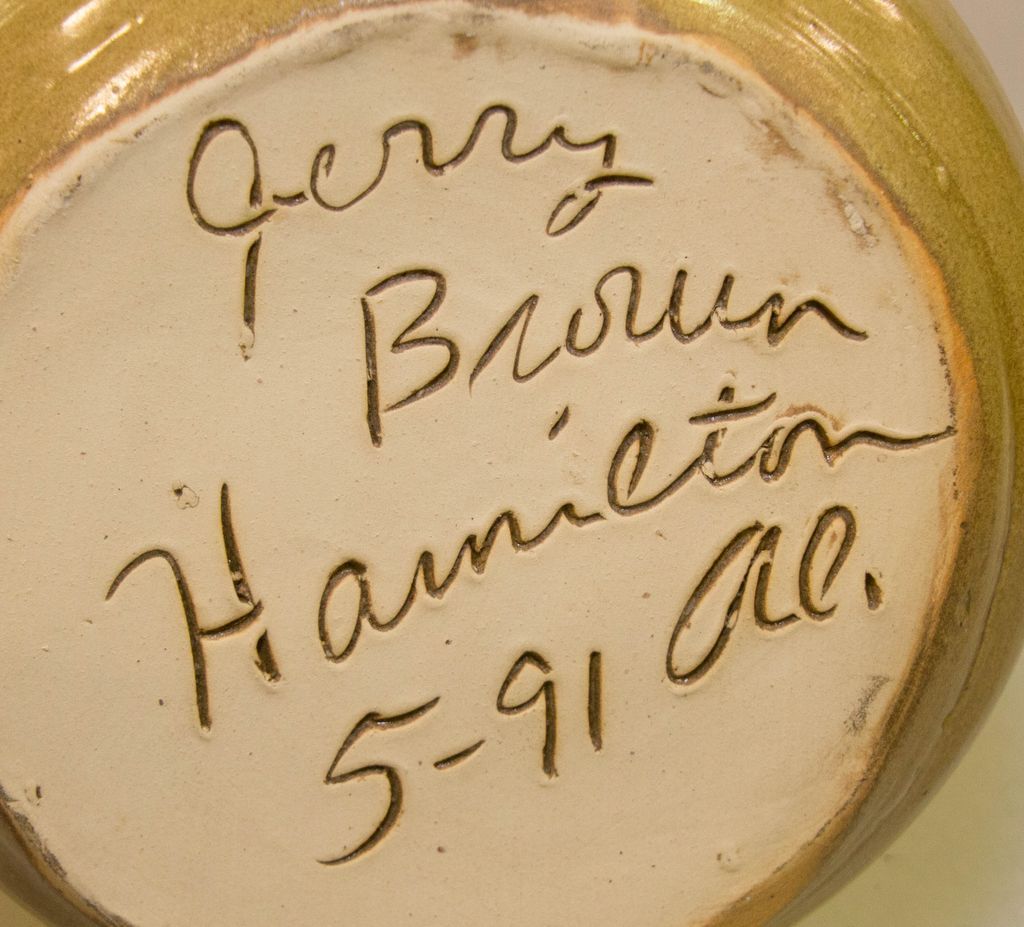 Jerry
Brown
Hamilton
Al.
5-91